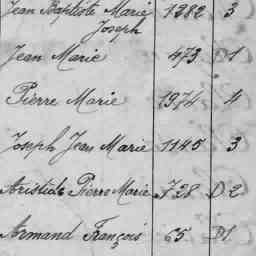 Jean Baptiste Marie 1382 3
Joseph
Jean Marie 473 D1
Pierre Marie 1974 4
Joseph Jean Marie 1145 3
Aristide Pierre Marie 728 D2
Armand François 65 D1